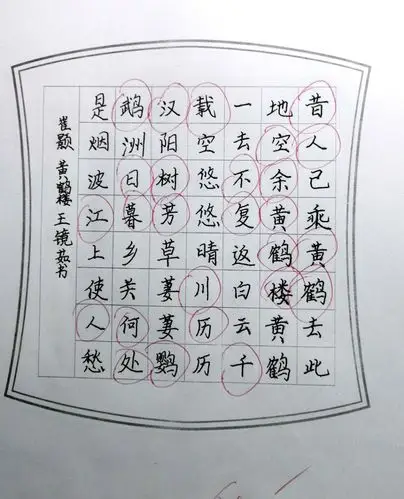 昔人已乘黄鹤去此
地空余黄鹤楼黄鹤
一去不复返白云千
载空悠悠晴川历历
汉阳树芳草萋萋鹦
鹉洲日暮乡关何处
是烟波江上使人愁
崔颢 黄鹤楼 王镜茹书